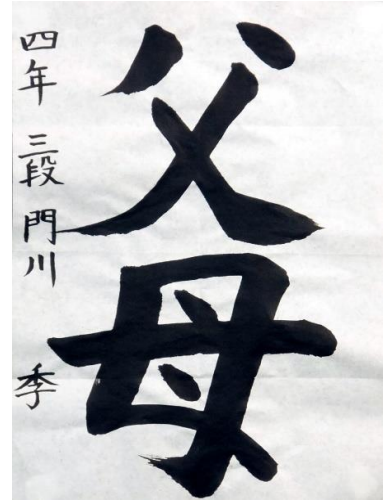 父母
四年 三段 門川 季